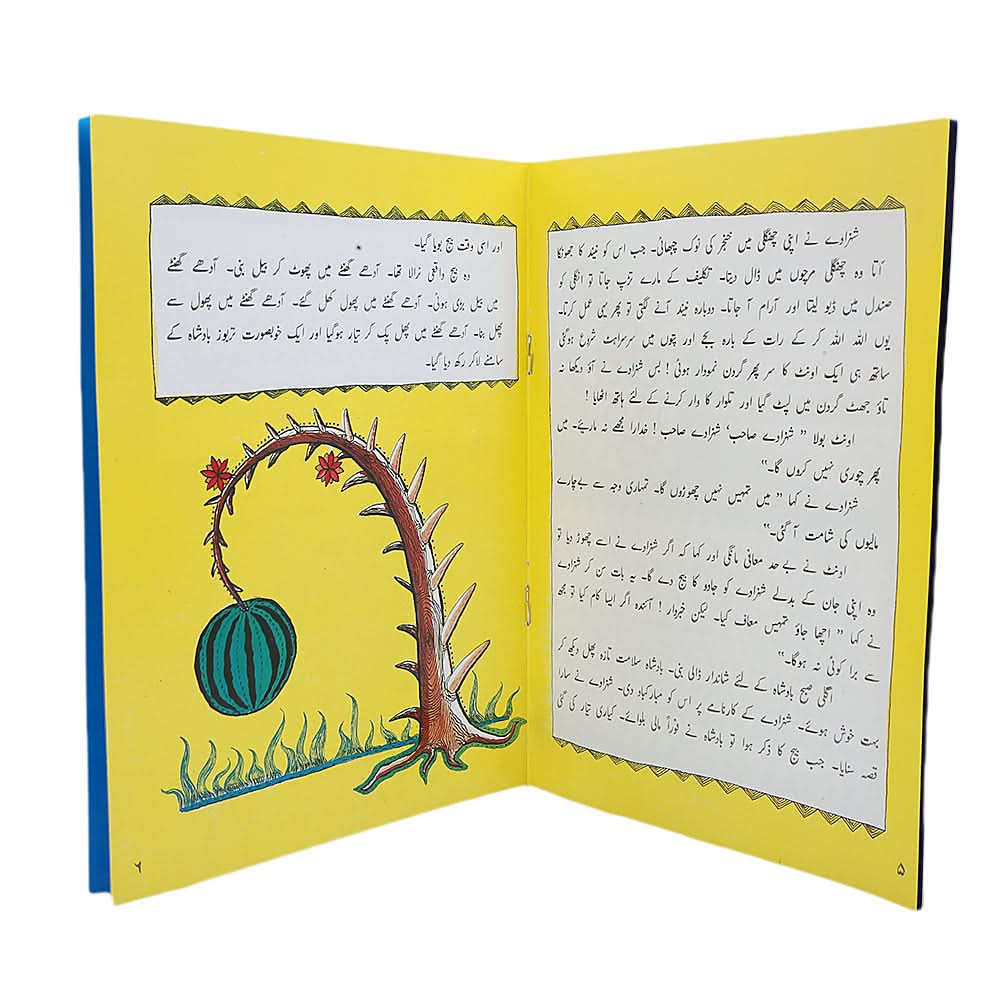 شہزادے نے اپنی چھنگلی میں خنجر کی نوک چبھائی۔ جب اس کو نیند کا جھونکا
آتا وہ چھنگلی مرچوں میں ڈال دیتا۔ تکلیف کے مارے تڑپ جاتا تو انگلی کو
صندل میں ڈبو لیتا اور آرام آ جاتا۔ دوبارہ نیند آنے لگتی تو پھر یہی عمل کرتا۔
یوں اللہ اللہ کر کے رات کے بارہ بجے اور پتوں میں سرسراہٹ شروع ہوگئی
ساتھ ہی ایک اونٹ کا سر پھر گردن نمودار ہوئی ! بس شہزادے نے آؤ دیکھا نہ
تاؤ جھٹ گردن میں لپٹ گیا اور تلوار کا وار کرنے کے لئے ہاتھ اٹھایا !
اونٹ بولا ” شہزادے صاحب‘ شہزادے صاحب ! خدارا مجھے نہ ماریئے۔ میں
پھر چوری نہیں کروں گا۔“
شہزادے نے کہا ” میں تمہیں نہیں چھوڑوں گا۔ تمہاری وجہ سے بے چارے
مالیوں کی شامت آ گئی۔“
اونٹ نے بے حد معافی مانگی اور کہا کہ اگر شہزادے نے اسے چھوڑ دیا تو
وہ اپنی جان کے بدلے شہزادے کو جادو کا بیج دے گا۔ یہ بات سن کر شہزادے
نے کہا ” اچھا جاؤ تمہیں معاف کیا۔ لیکن خبردار ! آئندہ اگر ایسا کام کیا تو مجھ
سے برا کوئی نہ ہوگا۔“
اگلی صبح بادشاہ کے لئے شاندار ڈالی بنی۔ بادشاہ سلامت تازہ پھل دیکھ کر
بہت خوش ہوئے۔ شہزادے کے کارنامے پر اس کو مبارکباد دی۔ شہزادے نے سارا
قصہ سنایا۔ جب بیج کا ذکر ہوا تو بادشاہ نے فوراً مالی بلوائے۔ کیاری تیار کی گئی
۵
اور اسی وقت بیج بویا گیا۔
وہ بیج واقعی نرالا تھا۔ آدھے گھنٹے میں پھوٹ کر بیل بنی۔ آدھے گھنٹے
میں بیل بڑی ہوئی۔ آدھے گھنٹے میں پھول کھل گئے۔ آدھے گھنٹے میں پھول سے
پھل بنا۔ آدھے گھنٹے میں پھل پک کر تیار ہوگیا اور ایک خوبصورت تربوز بادشاہ کے
سامنے لاکر رکھ دیا گیا۔
۶